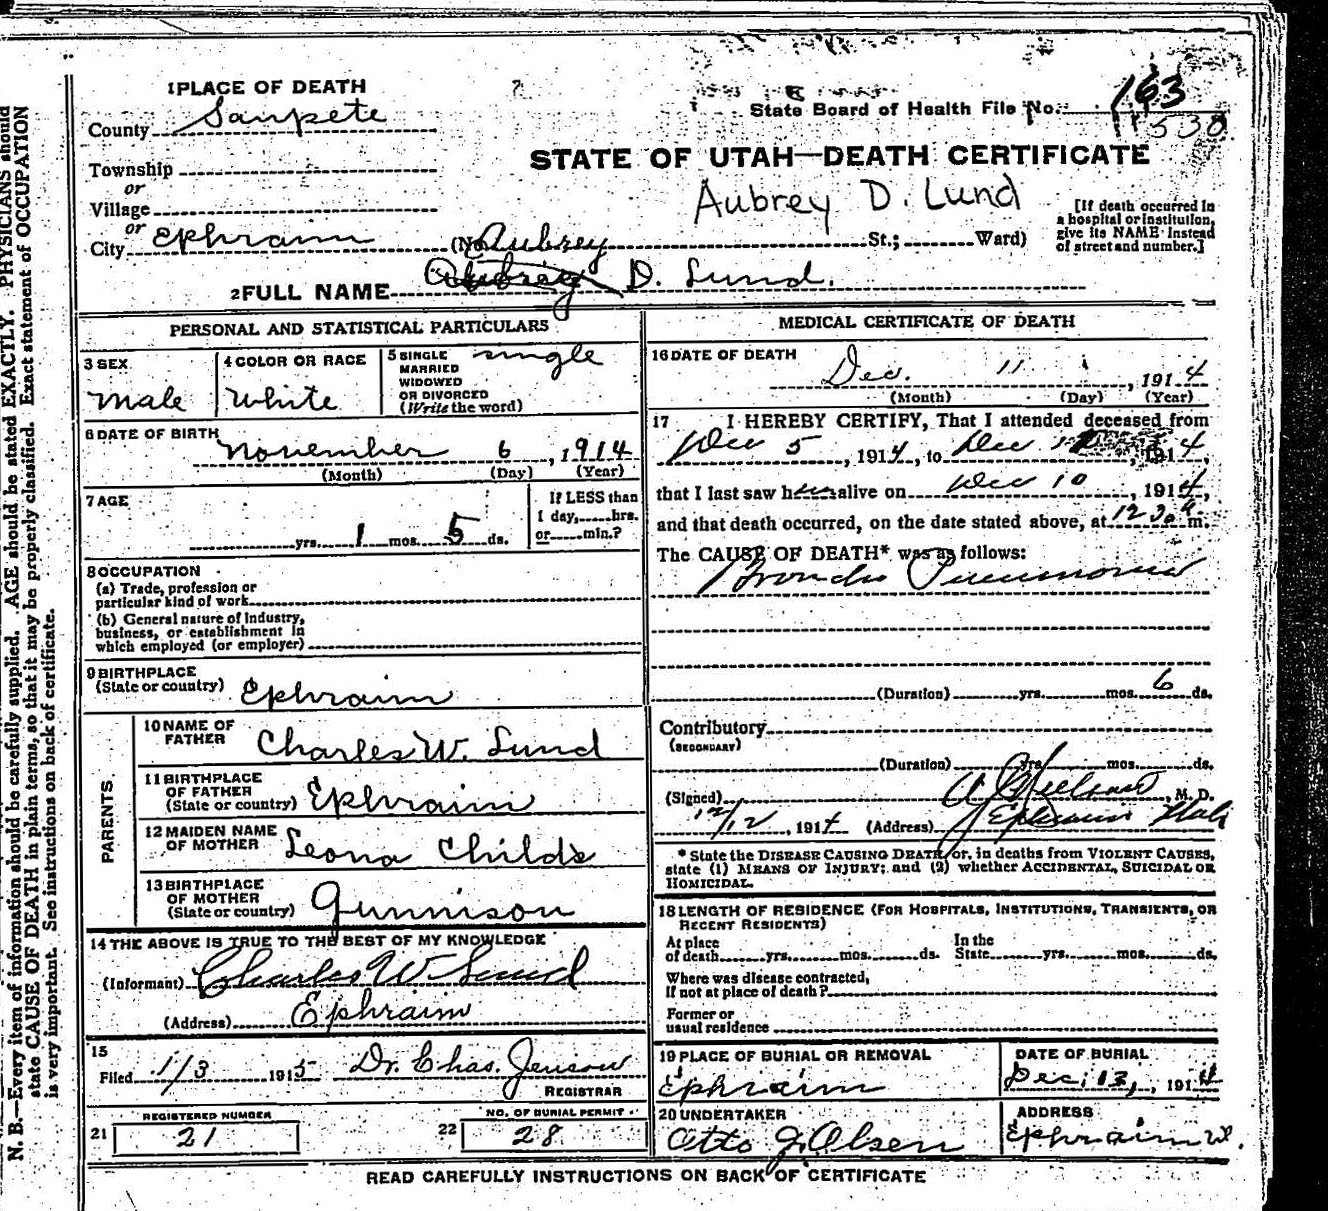 1 PLACE OF DEATH
County Sanpete
State Board of Health File No. 163
11530
STATE OF UTAH—DEATH CERTIFICATE
Township
or
Village
or
City Ephraim (No. Aubrey St.; Ward)
Aubrey D. Lund
[If death occurred in
a hospital or institution,
give its NAME instead
of street and number.]
2 FULL NAME Aubrey D. Lund.
PERSONAL AND STATISTICAL PARTICULARS
3 SEX
Male
4 COLOR OR RACE
White
5 SINGLE
MARRIED
WIDOWED
OR DIVORCED
(Write the word)
single
6 DATE OF BIRTH
November 6, 1914
(Month) (Day) (Year)
7 AGE
yrs. 1 mos. 5 ds.
If LESS than
1 day, hrs.
or min.?
8 OCCUPATION
(a) Trade, profession or
particular kind of work
(b) General nature of industry,
business, or establishment in
which employed (or employer)
9 BIRTHPLACE
(State or country) Ephraim
PARENTS
10 NAME OF
FATHER Charles W. Lund
11 BIRTHPLACE
OF FATHER
(State or country) Ephraim
12 MAIDEN NAME
OF MOTHER Leona Childs
13 BIRTHPLACE
OF MOTHER
(State or country) Gunnison
14 THE ABOVE IS TRUE TO THE BEST OF MY KNOWLEDGE
(Informant) Charles W Lund
(Address) Ephraim
15
Filed 1/3 1915 Dr. Chas. Jenson
REGISTRAR
REGISTERED NUMBER
21 21
NO. OF BURIAL PERMIT
22 28
MEDICAL CERTIFICATE OF DEATH
16 DATE OF DEATH
Dec. 11, 1914
(Month) (Day) (Year)
17 I HEREBY CERTIFY, That I attended deceased from
Dec 5, 1914, to Dec, 1914,
that I last saw him alive on Dec 10, 1914,
and that death occurred, on the date stated above, at 12 30 a m.
The CAUSE OF DEATH* was as follows:
Broncho Pneumonia
(Duration) yrs. mos. 6 ds.
Contributory
(SECONDARY)
(Duration) yrs. mos. ds.
(Signed) , M. D.
12/12, 1914 (Address) Ephraim Utah
* State the DISEASE CAUSING DEATH, or, in deaths from VIOLENT CAUSES,
state (1) MEANS OF INJURY; and (2) whether ACCIDENTAL, SUICIDAL OR
HOMICIDAL.
18 LENGTH OF RESIDENCE (FOR HOSPITALS, INSTITUTIONS, TRANSIENTS, OR
RECENT RESIDENTS)
At place
of death yrs. mos. ds.
In the
State yrs. mos. ds.
Where was disease contracted,
if not at place of death?
Former or
usual residence
19 PLACE OF BURIAL OR REMOVAL
Ephraim
DATE OF BURIAL
Dec. 13, 1914
20 UNDERTAKER
Otto J. Olsen
ADDRESS
Ephraim U.
READ CAREFULLY INSTRUCTIONS ON BACK OF CERTIFICATE
N. B.—Every item of information should be carefully supplied. AGE should be stated EXACTLY. PHYSICIANS should
state CAUSE OF DEATH in plain terms, so that it may be properly classified. Exact statement of OCCUPATION
is very important. See instructions on back of certificate.